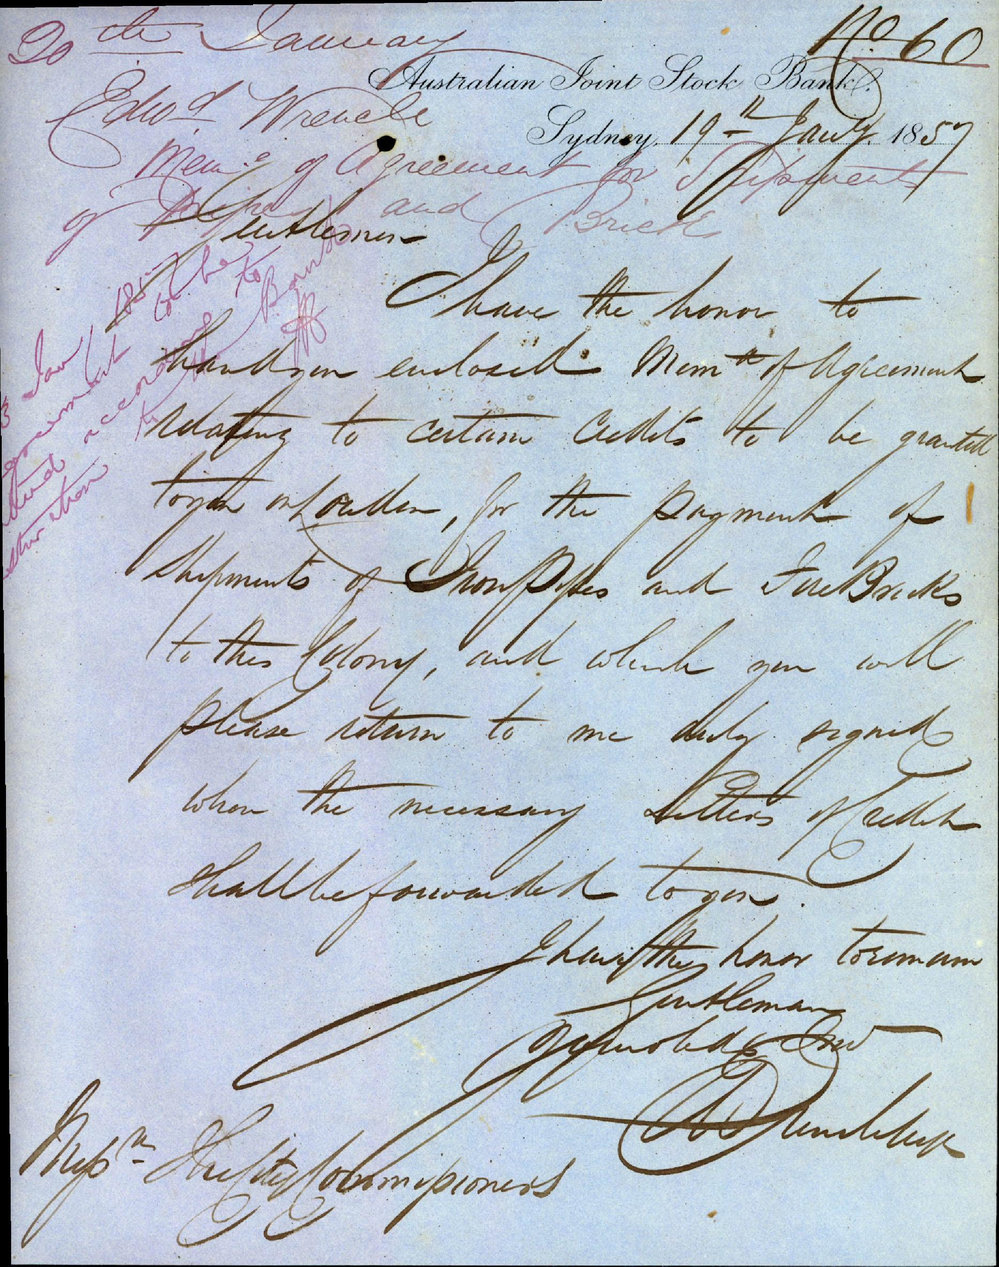 No 60
20th January
Australian Joint Stock Bank.
Sydney, 19th Jany. 1857
Edwd Wrench
Memo of Agreement for Shipments
of Pipes and Bricks
Gentlemen
I have the honor to
hand you enclosed Memm of Agreement
relating to certain Credits to be granted
to you on London, for the payment of
Shipments of Iron Pipes and Fire Bricks
to this Colony, and which you will
please return to me duly signed
when the necessary Letters of Credit
shall be forwarded to you
I have the honor to remain
Gentlemen
Yr. obed Servt
Messrs The City Commissioners
Jany 1857
to be
according to
Bond